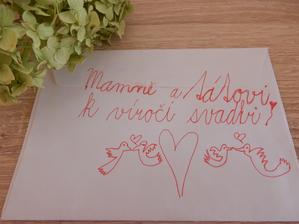 Mamně a táťovi
k víročí svadbi